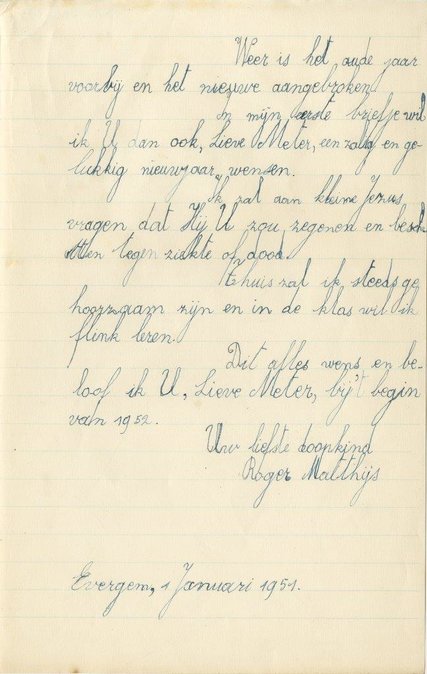 Weer is het oude jaar
voorbij en het nieuwe aangebroken
In mijn eerste briefje wil
ik U dan ook, Lieve Meter, een zalig en ge-
lukkig nieuwjaar wensen.
Ik zal aan kleine Jezus
vragen dat Hij U zou zegenen en besch
utten tegen ziekte of dood.
Thuis zal ik steeds ge
hoorzaam zijn en in de klas wil ik
flink leren.
Dit alles wens en be-
loof ik U, Lieve Meter, bij't begin
van 1952.
Uw liefste doopkind
Roger Matthijs
Evergem, 1 Januari 1951.